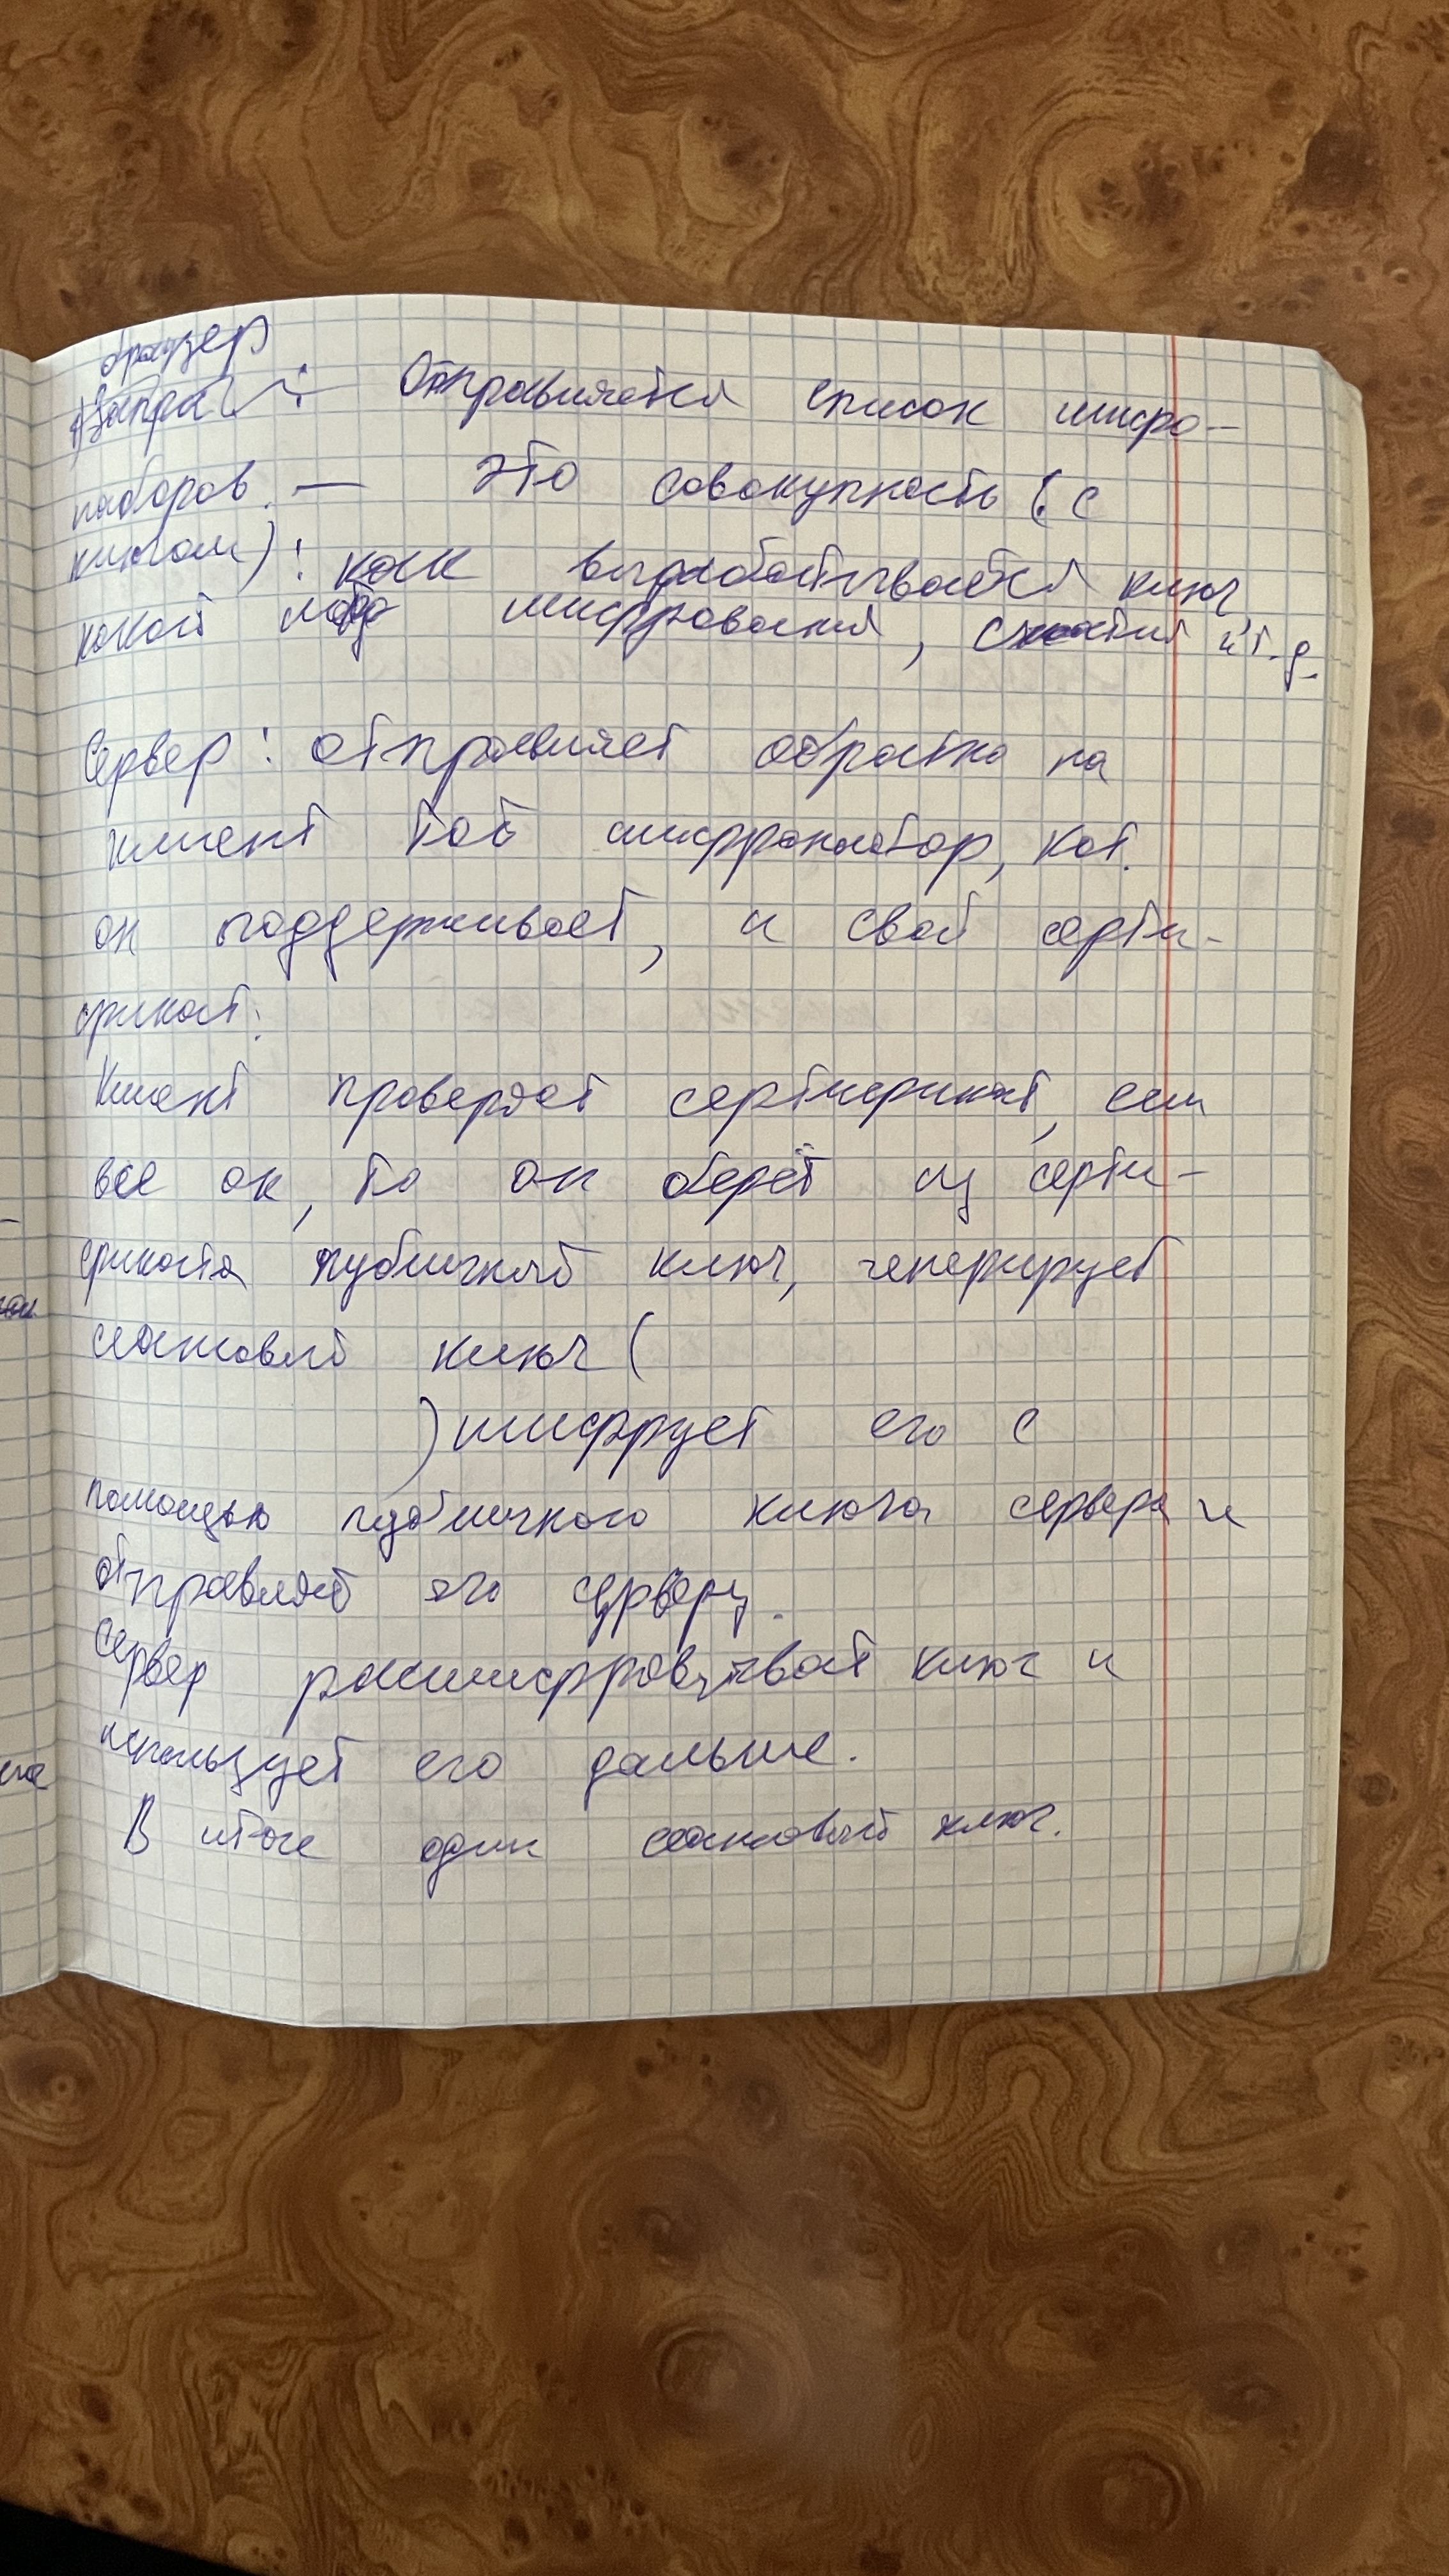 браузер
1) Запрос : Отправляется список шифро-
наборов. — это совокупность (с
ключом) : как вырабатывается ключ
какой мода шифрования, сжатия и т.д.
Сервер : отправляет обратно на
клиент тот шифронабор, кот.
он поддерживает, и свой серти-
фикат.
Клиент проверяет сертификат, если
все ок, то он берёт из серти-
фиката публичный ключ, генерирует
сеансовый ключ (
) шифрует его с
помощью публичного ключа сервера и
отправляет его серверу.
Сервер расшифровывает ключ и
использует его дальше.
В итоге один сеансовый ключ.